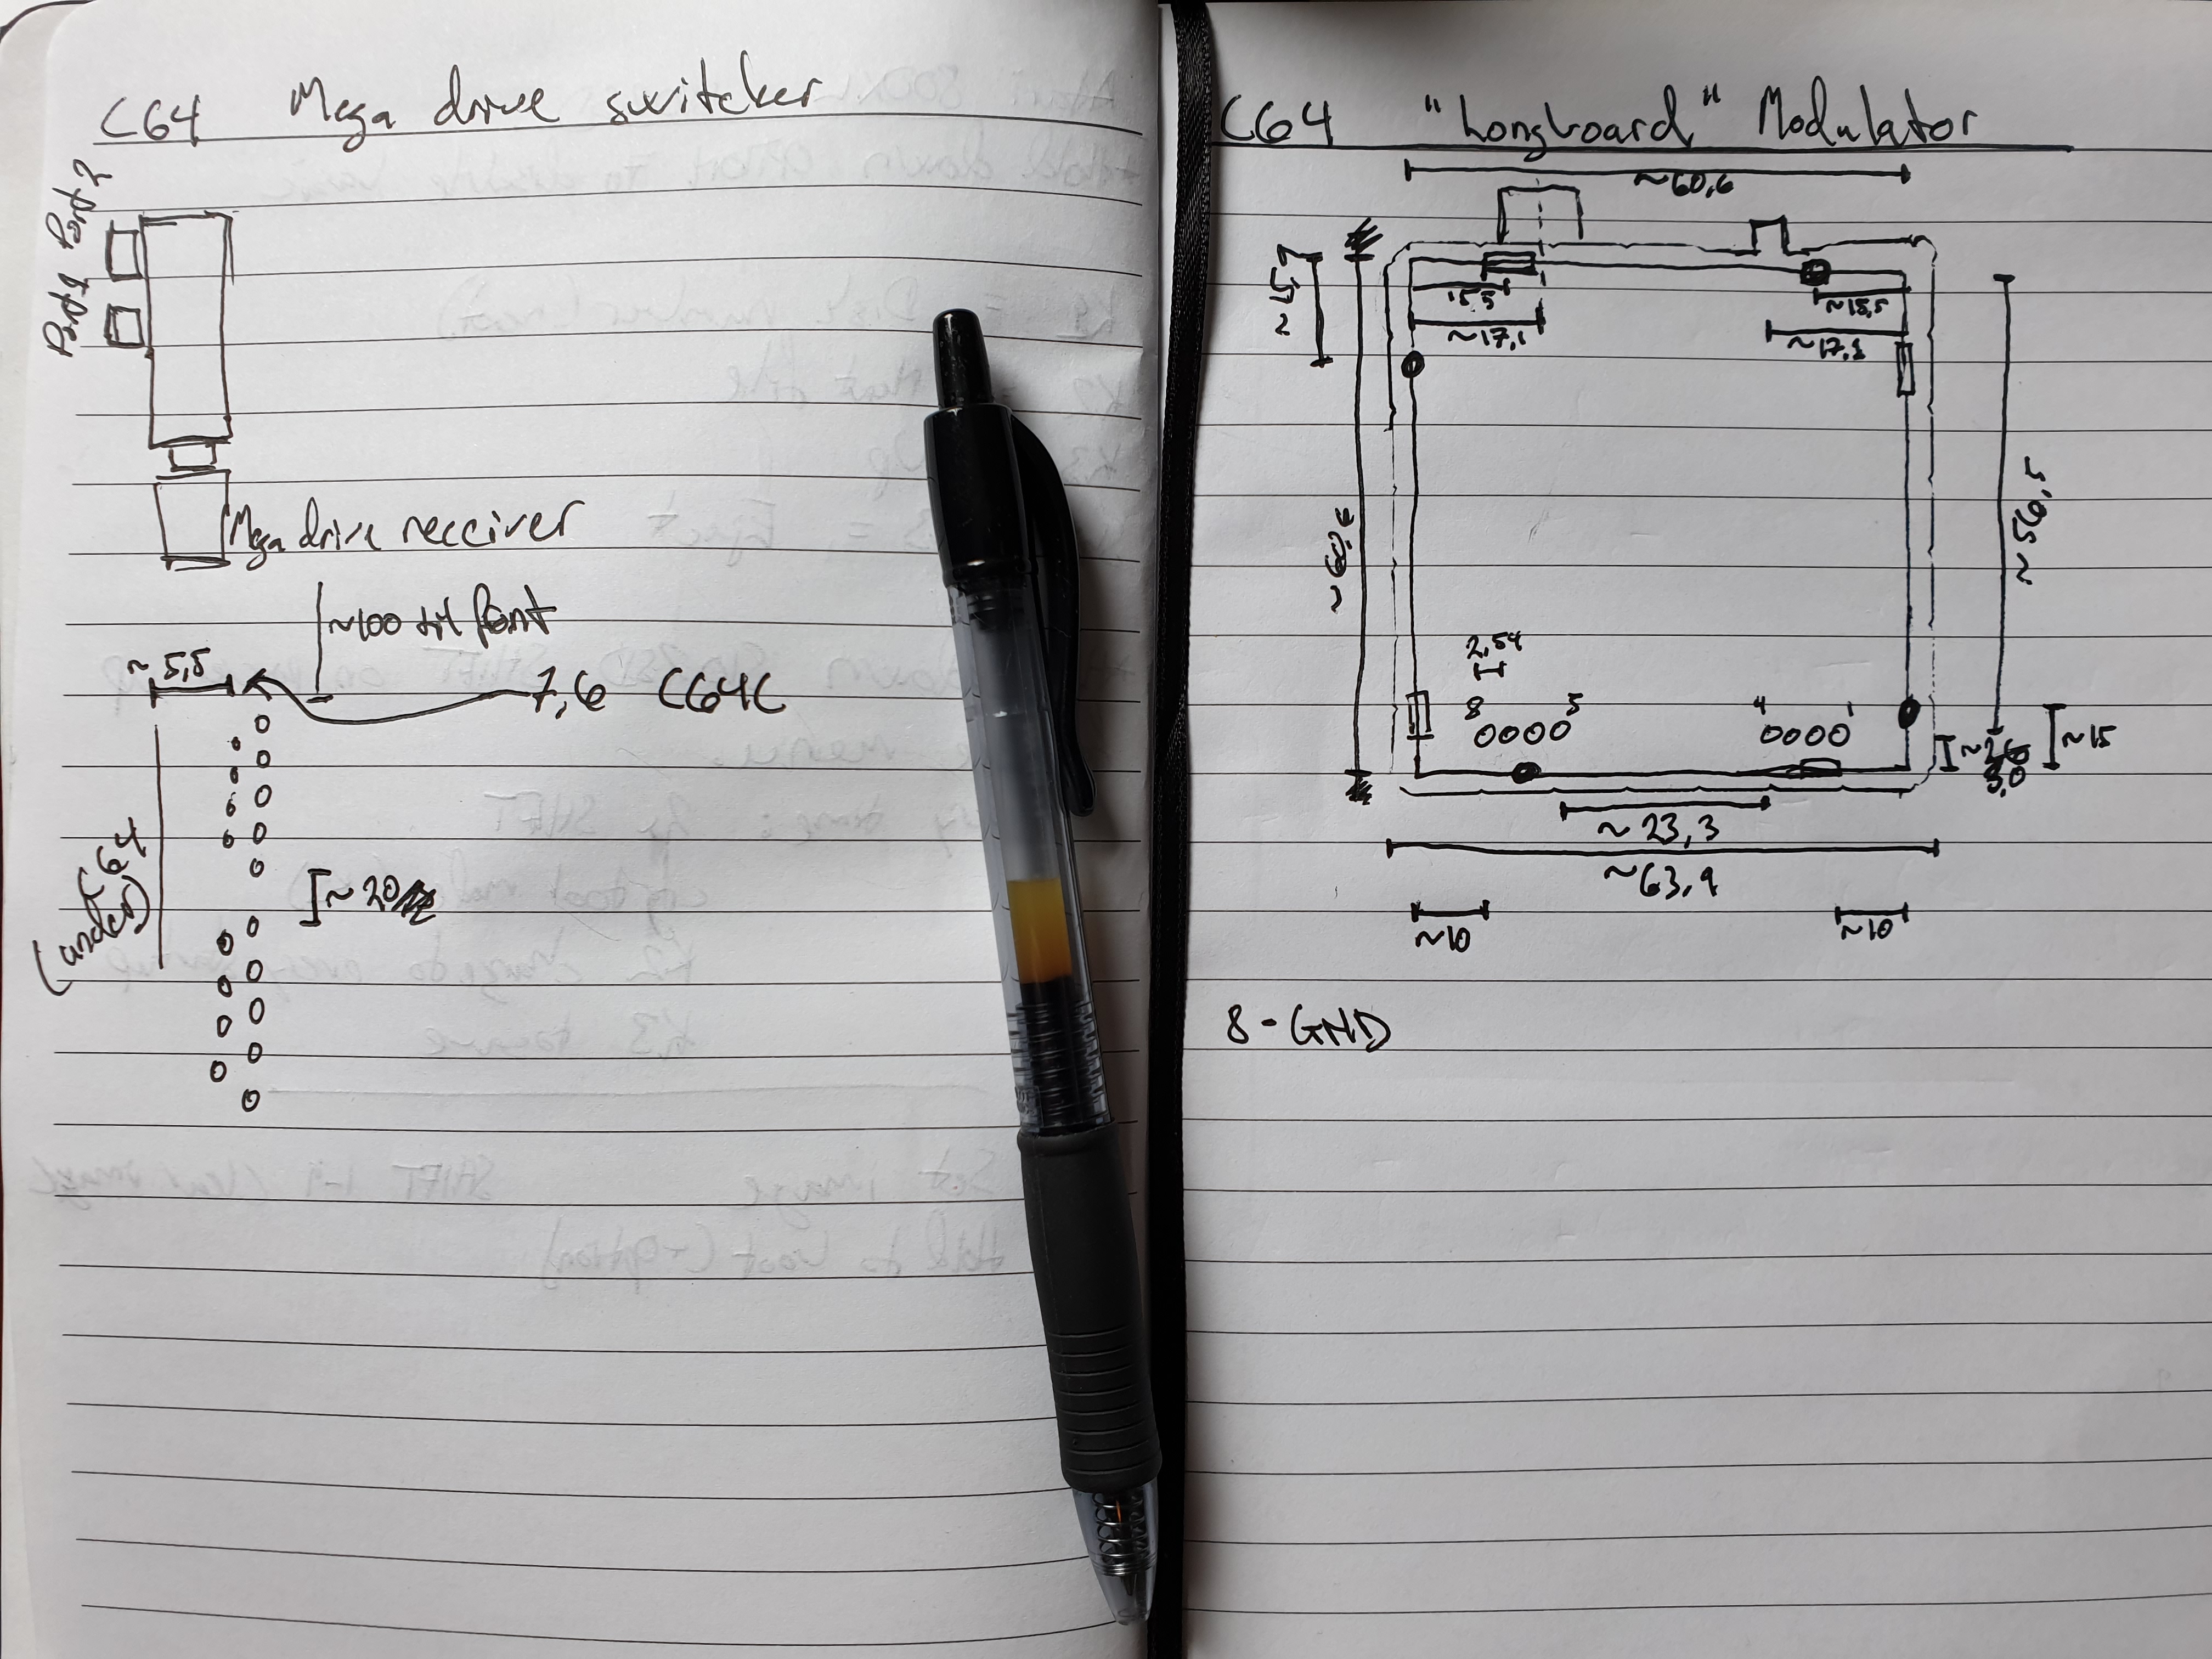 C64 Mega drive switcker
Port 2
Port 1
Mega drive receiver
~100 till font
~5,5
7,6 C64C
C64
(under)
~20
C64 "Longboard" Modulator
~60,6
15,5
~15,5
~17,1
~17,1
~60,6
~56,5
2,54
8 5 4 1
~15
3,0
~23,3
~63,9
~10 ~10
8-GND